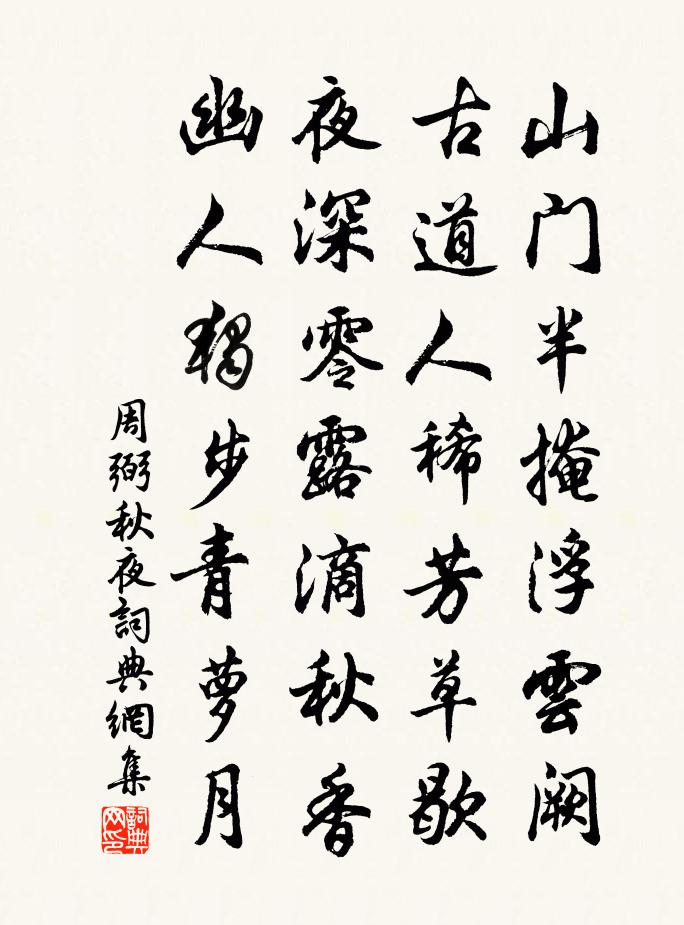 山门半掩浮雲阙
古道人稀芳草歇
夜深零露滴秋香
幽人獨步青萝月
周弼秋夜詞典網集
詞典网印